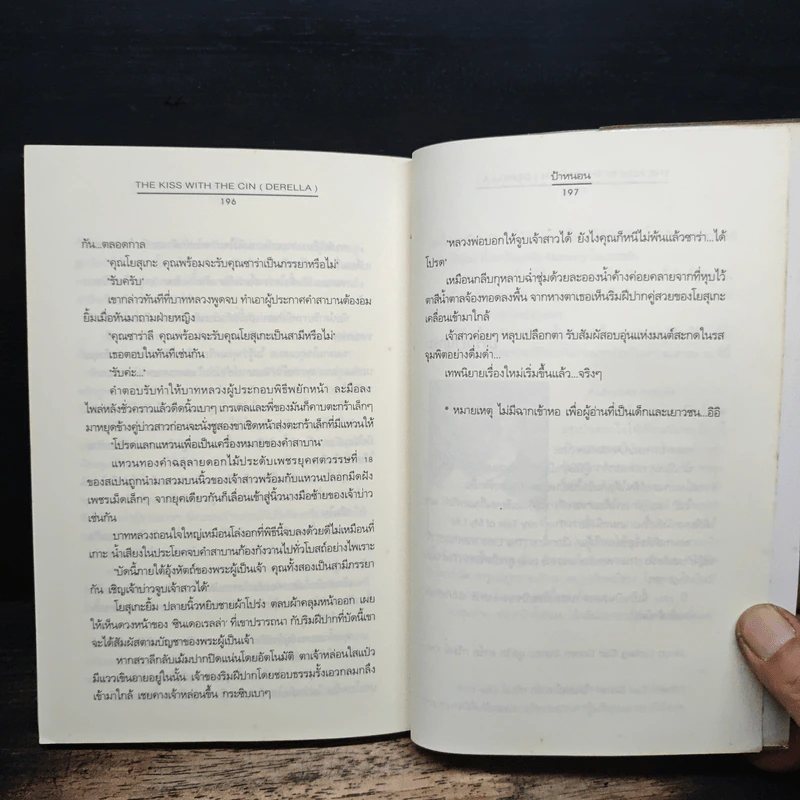 THE KISS WITH THE CIN ( DERELLA )
196
กัน...ตลอดกาล
"คุณโยสุเกะ คุณพร้อมจะรับคุณซาร่าเป็นภรรยาหรือไม่"
"รับครับ"
เขากล่าวทันทีที่บาทหลวงพูดจบ ทำเอาผู้ประกาศคำสาบานต้องอม
ยิ้มเมื่อหันมาถามฝ่ายหญิง
"คุณซาร่าลี คุณพร้อมจะรับคุณโยสุเกะเป็นสามีหรือไม่"
เธอตอบในทันทีเช่นกัน
"รับค่ะ..."
คำตอบรับทำให้บาทหลวงผู้ประกอบพิธีพยักหน้า ละมือลง
ไพล่หลังชั่วคราวแล้วดีดนิ้วเบาๆ เกรเตลและพี่ของมันก็คาบตะกร้าเล็กๆ
มาหยุดข้างคู่บ่าวสาวก่อนจะนั่งชูสองขาเชิดหน้าส่งตะกร้าเล็กที่มีแหวนให้
"โปรดแลกแหวนเพื่อเป็นเครื่องหมายของคำสาบาน"
แหวนทองคำฉลุลายดอกไม้ประดับเพชรยุคศตวรรษที่ 18
ของสเปนถูกนำมาสวมบนนิ้วของเจ้าสาวพร้อมกับแหวนปลอกมีดฝัง
เพชรเม็ดเล็กๆ จากยุคเดียวกันก็เลื่อนเข้าสู่นิ้วนางมือซ้ายของเจ้าบ่าว
เช่นกัน
บาทหลวงถอนใจใหญ่เหมือนโล่งอกที่พิธีนี้จบลงด้วยดีไม่เหมือนที่
เกาะ น้ำเสียงในประโยคจบคำสาบานก้องกังวานไปทั่วโบสถ์อย่างไพเราะ
"บัดนี้ภายใต้อุ้งหัตถ์ของพระผู้เป็นเจ้า คุณทั้งสองเป็นสามีภรรยา
กัน เชิญเจ้าบ่าวจูบเจ้าสาวได้"
โยสุเกะยิ้ม ปลายนิ้วหยิบชายผ้าโปร่ง ตลบผ้าคลุมหน้าออก เผย
ให้เห็นดวงหน้าของ 'ซินเดอเรลล่า' ที่เขาปรารถนา กับริมฝีปากที่บัดนี้เขา
จะได้สัมผัสตามบัญชาของพระผู้เป็นเจ้า
หากสราลีกลับเม้มปากปิดแน่นโดยอัตโนมัติ ตาเจ้าหล่อนใสแป๋ว
มีแววเขินอายอยู่ในนั้น เจ้าของริมฝีปากโดยชอบธรรมรั้งเอวกลมกลึง
เข้ามาใกล้ เชยคางเจ้าหล่อนขึ้น กระซิบเบาๆ
ป้าหนอน
197
"หลวงพ่อบอกให้จูบเจ้าสาวได้ ยังไงคุณก็หนีไม่พ้นแล้วซาร่า...ได้
โปรด"
เหมือนกลีบกุหลาบฉ่ำชุ่มด้วยละอองน้ำค้างค่อยคลายจากที่หุบไว้
ตาสีน้ำตาลจ้องทอดลงพื้น จากหางตาเธอเห็นริมฝีปากคู่สวยของโยสุเกะ
เคลื่อนเข้ามาใกล้
เจ้าสาวค่อยๆ หลุบเปลือกตา รับสัมผัสอบอุ่นแห่งมนต์สะกดในรส
จุมพิตอย่างดื่มด่ำ...
เทพนิยายเรื่องใหม่เริ่มขึ้นแล้ว...จริงๆ
* หมายเหตุ ไม่มีฉากเข้าหอ เพื่อผู้อ่านที่เป็นเด็กและเยาวชน...อิอิ